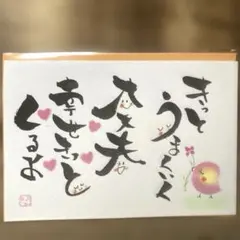 きっと
うまくいく
大丈夫
幸せきっと
くるよ